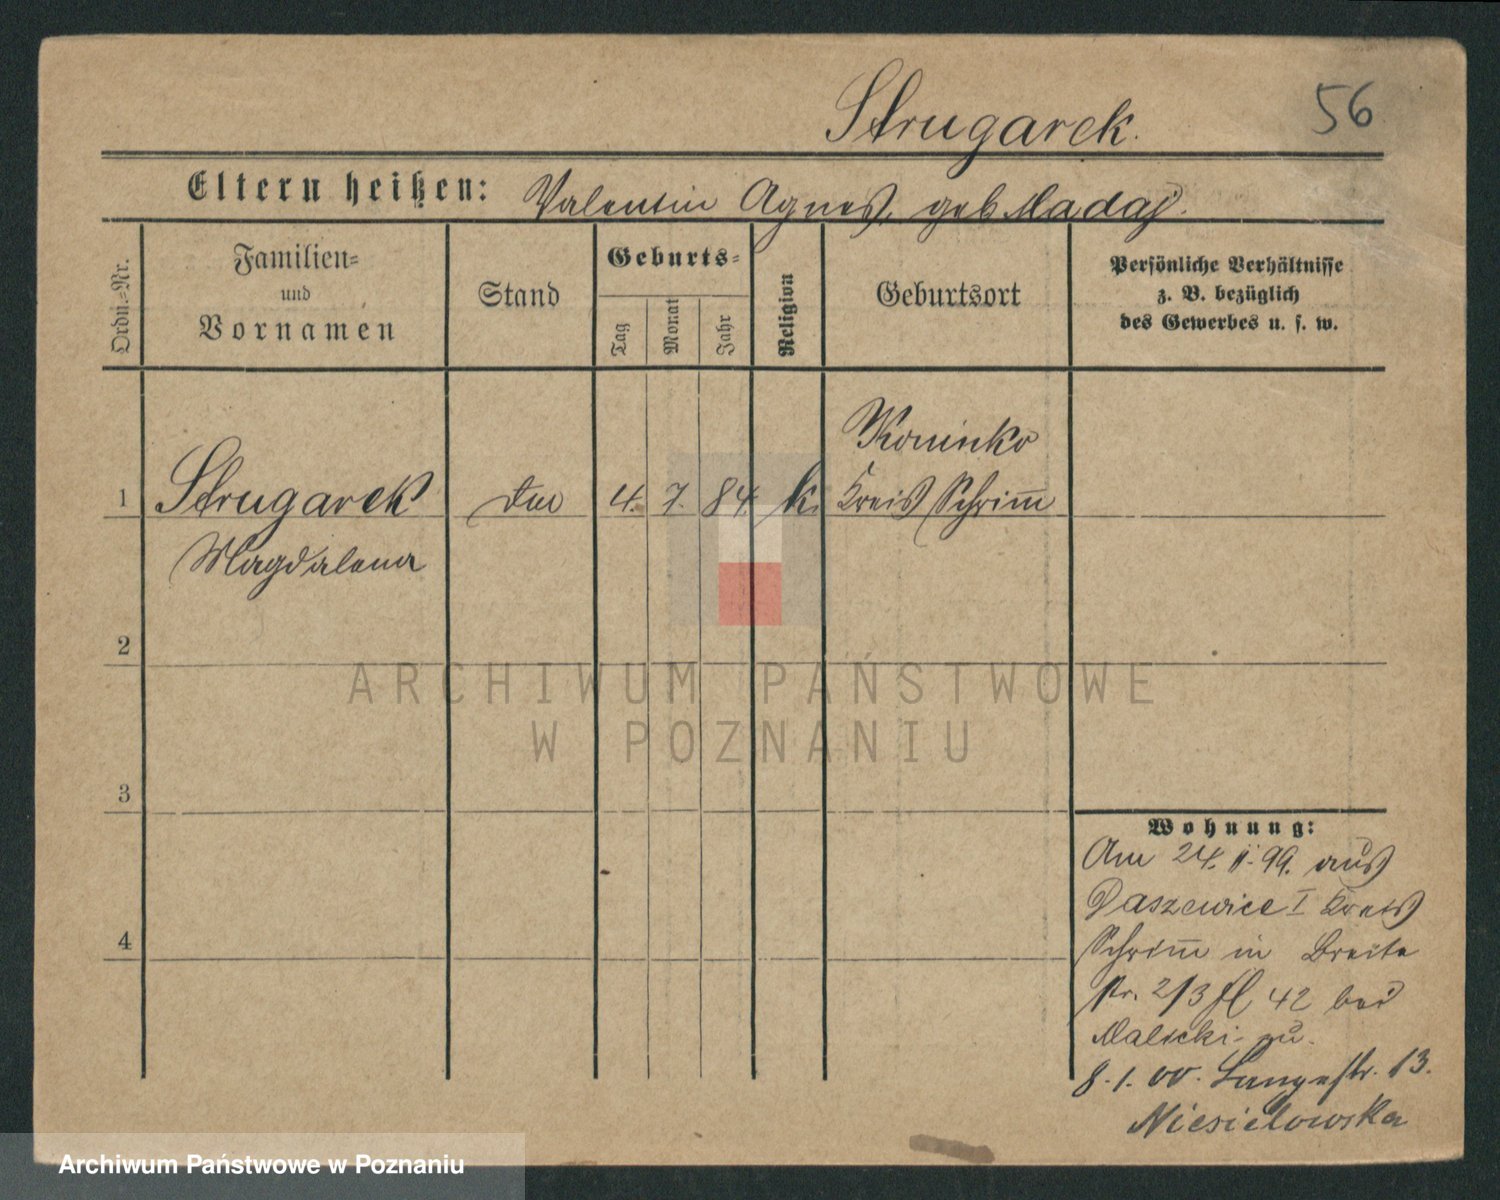 Strugarek.
56
Eltern heißen: Valentin Agnes, geb Madaj.
Ordn.-Nr.
Familien- und Vornamen
Stand
Geburts-
Tag
Monat
Jahr
Religion
Geburtsort
Persönliche Verhältnisse
z. B. bezüglich
des Gewerbes u. s. w.
Koninko
1 Strugarek 4. 7. 84. k. Kreis Schrim̅
Magdalena
2
3
4
Wohnung:
Am 24. II. 99. aus
Daszewice I Kreis
Schrim̅ in Breite
str. 2/3 42 bei
zu.
8. 1. 00. Langestr. 13.
Niesielowska
ARCHIWUM PAŃSTWOWE
W POZNANIU
Archiwum Państwowe w Poznaniu